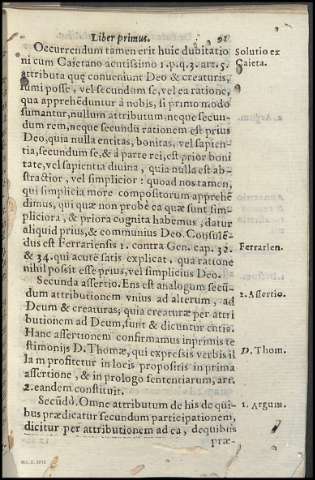 Liber primus. 91
Occurrendum tamen erit huic dubitatio
ni cum Caietano acutissimo 1.p.q.3. arr.5.
attributa quę conveniunt Deo & creaturis,
sumi posse, vel secundum se, vel ea ratione,
qua apprehēduntur à nobis, si primo modo
sumantur, nullum attributum, neque secun-
dum rem, neque secundū rationem est prius
Deo, quia nulla entitas, bonitas, vel sapien-
tia, secundum se, & á parte rei, est prior boni
tate, vel sapientia divina, quia nulla est ab-
stractior, vel simplicior: quoad nos tamen,
qui simplicia more compositorum apprehē
dimus, qui quæ non probè ea quæ sunt sim-
pliciora, & priora cognita habemus, datur
aliquid prius, & communius Deo. Consulē-
dus est Ferrariensis 1. contra Gen. cap. 32.
& 34. qui acutè satis explicat, qua ratione
nihil possit esse prius, vel simplicius Deo.
Secunda assertio. Ens est analogum secū-
dum attributionem vnius ad alterum, ad
Deum & creaturas; quia creaturæ per attri
butionem ad Deum, sunt & dicuntur entia.
Hanc assertionem confirmamus inprimis te
stimonijs D. Thomæ, qui expressis verbis il
la m profitetur in locis propositis in prima
assertione, & in prologo sententiarum, arr.
2. eandem constituit.
Secūdò. Omne attributum de his de qui-
bus prædicatur secundum participationem,
dicitur per attributionem ad ea, dequibus
præ-
Solutio ex
Caieta.
Ferrarien.
2. Assertio.
D. Thom.
1. Argum.